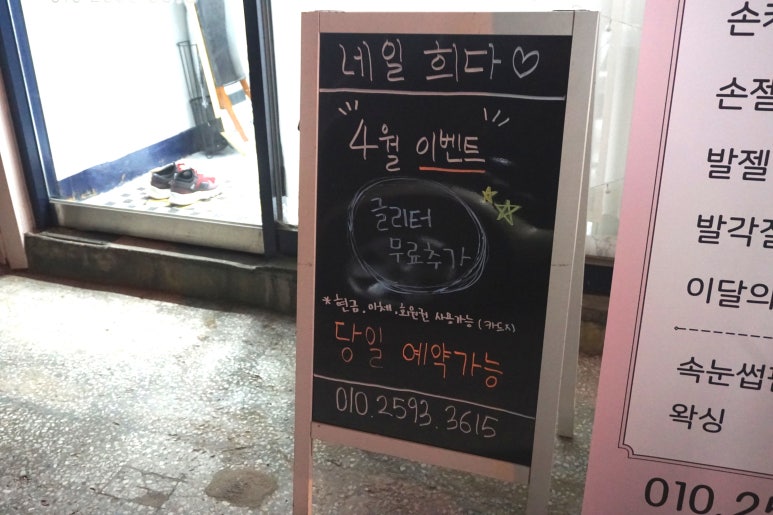 네일 희다♡
4월 이벤트
글리터
무료추가
*현금.이체.회원권 사용가능(카드X)
당일 예약가능
010.2593.3615
손젤
발젤
발각질
이달의
속눈썹
왁싱
010.25